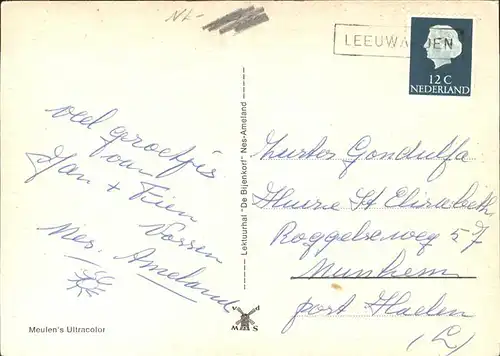 NL-
LEEUWARDEN
12 C
NEDERLAND
veel groetjes
van
Jan + Fien
Vossen
Nes, Ameland
Lektuurhal "De Bijenkorf" Nes-Ameland
Zuster Gondulfa
Huize St Elisabeth
Roggelseweg 57
Nunhem
post Haelen
(L)
Meulen's Ultracolor
v d
M S